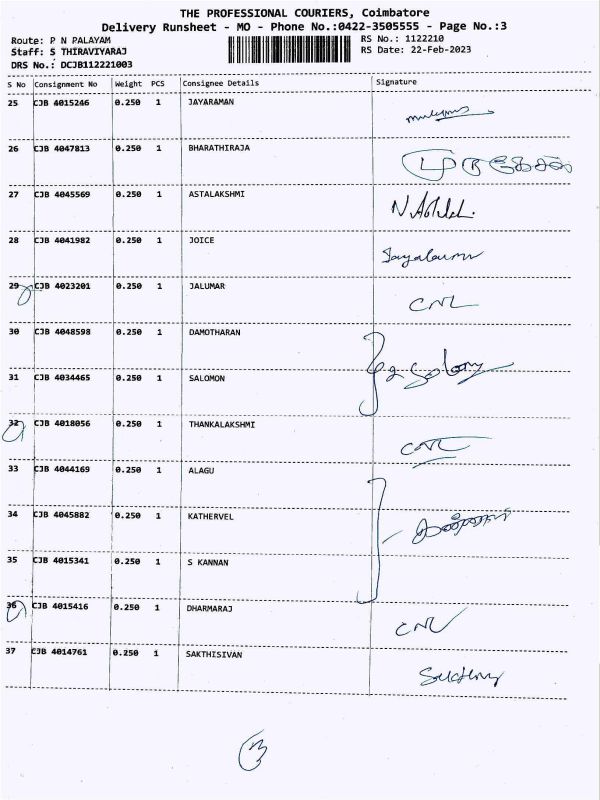 THE PROFESSIONAL COURIERS, Coimbatore
Delivery Runsheet - MO - Phone No.:0422-3505555 - Page No.:3
Route: P N PALAYAM RS No.: 1122210
Staff: S THIRAVIYARAJ RS Date: 22-Feb-2023
DRS No.: DCJB112221003
S No Consignment No Weight PCS Consignee Details Signature
25 CJB 4015246 0.250 1 JAYARAMAN
26 CJB 4047813 0.250 1 BHARATHIRAJA
27 CJB 4045569 0.250 1 ASTALAKSHMI
28 CJB 4041982 0.250 1 JOICE
29 CJB 4023201 0.250 1 JALUMAR
CNL
30 CJB 4048598 0.250 1 DAMOTHARAN
31 CJB 4034465 0.250 1 SALOMON
32 CJB 4018056 0.250 1 THANKALAKSHMI
CNL
33 CJB 4044169 0.250 1 ALAGU
34 CJB 4045882 0.250 1 KATHERVEL
35 CJB 4015341 0.250 1 S KANNAN
36 CJB 4015416 0.250 1 DHARMARAJ
CNL
37 CJB 4014761 0.250 1 SAKTHISIVAN